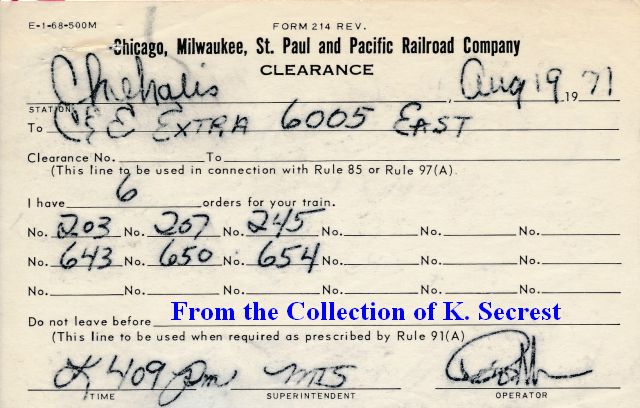 E-1-68-500M FORM 214 REV.
Chicago, Milwaukee, St. Paul and Pacific Railroad Company
CLEARANCE
Chehalis, Aug 19 1971
STATION
To C&E EXTRA 6005 EAST
Clearance No. To
(This line to be used in connection with Rule 85 or Rule 97(A).
I have 6 orders for your train.
No. 203 No. 207 No. 245 No. No. No.
No. 643 No. 650 No. 654 No. No. No.
No. No. No. No. No. No.
From the Collection of K. Secrest
Do not leave before
(This line to be used when required as prescribed by Rule 91(A)
409 pm
TIME SUPERINTENDENT OPERATOR